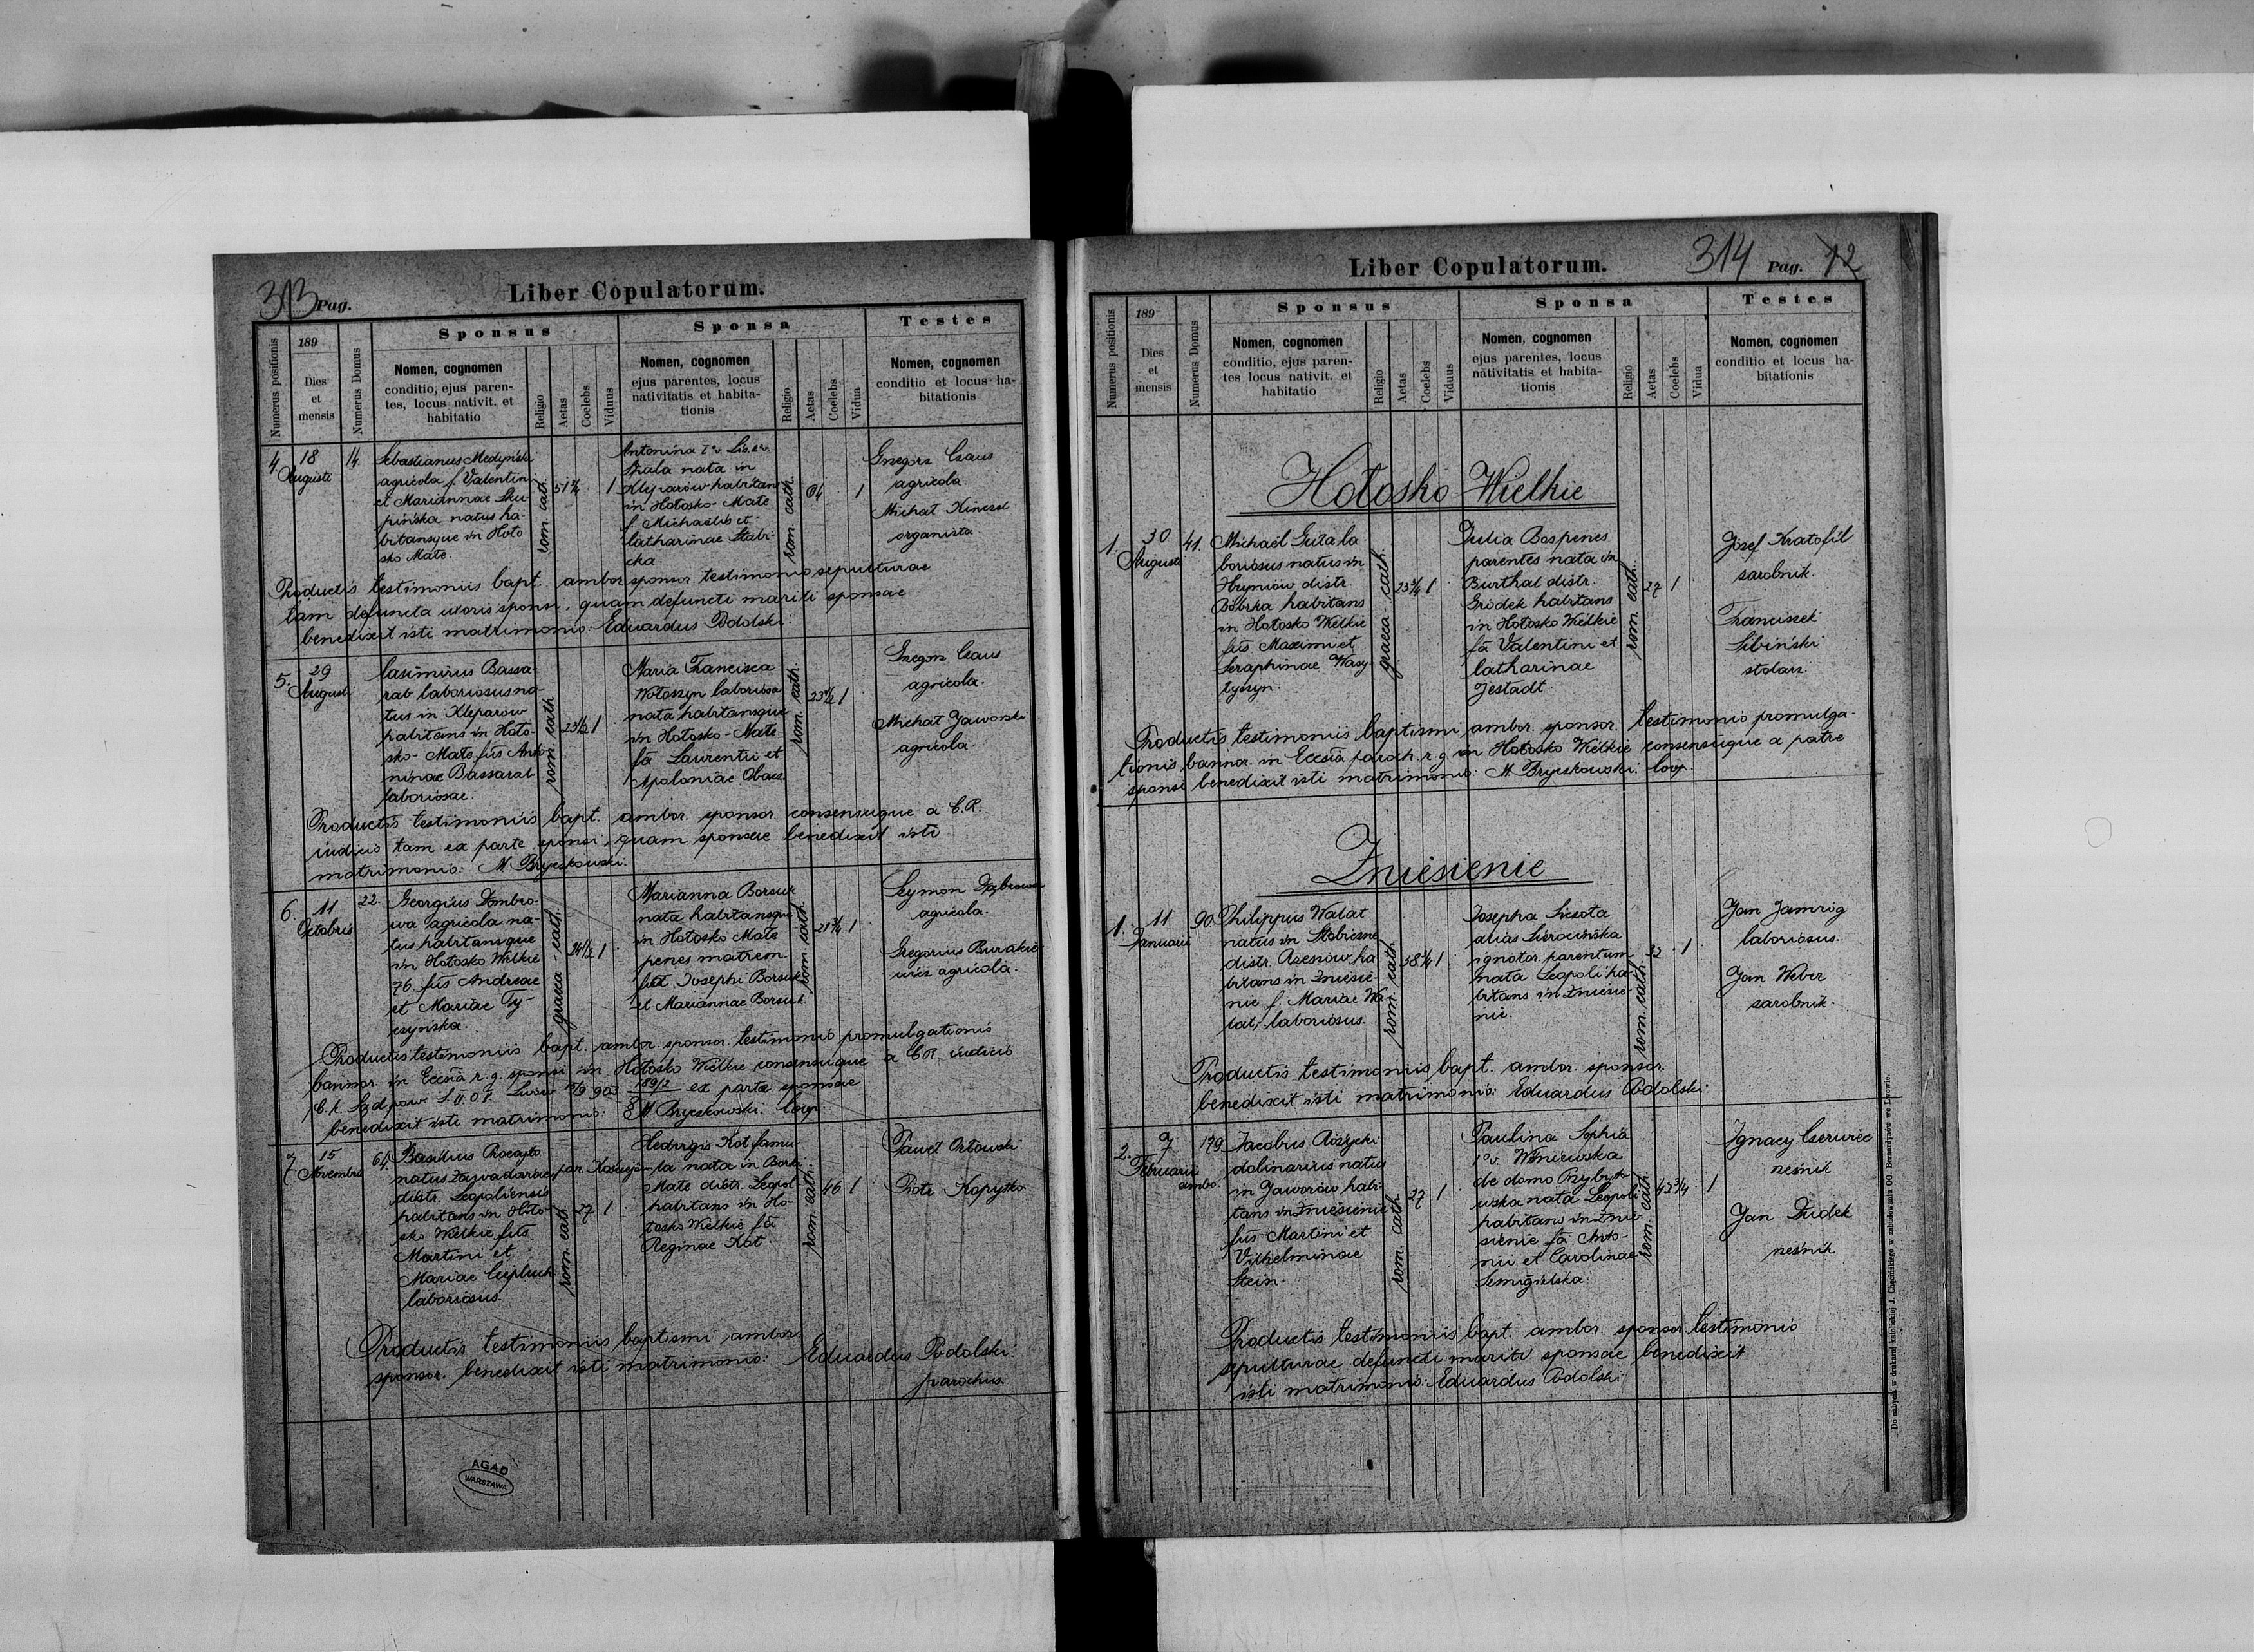 313 Pag.
Liber Copulatorum.
Numerus positionis
189
Dies
et
mensis
Numerus Domus
Sponsus
Nomen, cognomen
conditio, ejus paren-
tes, locus nativit. et
habitatio
Religio
Aetas
Coelebs
Viduus
Sponsa
Nomen, cognomen
ejus parentes, locus
nativitatis et habita-
tionis
Religio
Aetas
Coelebs
Vidua
Testes
Nomen, cognomen
conditio et locus ha-
bitationis
4.
18
Augusti
14.
Sebastianus Medyński
agricola f. Valentin
et Mariannae Sku-
pińska natus ha-
bitansque in Hoło
sko Małe.
rom. cath.
51
1
Antonina
nata in
Kleparów habitans
in Hołosko-Małe
f. Michaelis et
Catharinae Stabi-
cka.
rom. cath.
64
1
Grzegorz Czaus
agricola
Michał Kinczel
organista
Productis testimoniis bapt. ambor sponsor testimonio sepulturae
tam defuncta uxoris sponsi, quam defuncti mariti sponsae
benedixit isti matrimonio: Eduardus Podolski.
5.
29
Augusti
Casimirus Bassa-
rab laboriosus na-
tus in Kleparów
habitans in Hoło-
sko-Małe fus Anto-
ninae Bassarab
laboriosae.
rom. cath
23½
1
Maria Francisca
Wołoszyn laboriosa
nata habitansque
in Hołosko-Małe
fa Laurentii et
Apoloniae
rom. cath.
23½
1
Grzegorz Czaus
agricola.
Michał Jaworski
agricola.
Productis testimoniis bapt. ambor. sponsor. consensuque a C.R.
iudicio tam ex parte sponsi, quam sponsae benedixit isti
matrimonio: M. Bryczkowski.
6.
11
Octobris
22.
Georgius Dombro-
wa agricola na-
tus habitansque
in Hołosko Wielkie
76 fus Andreae
et Mariae Ty-
czyńska.
graeco-cath.
24½
1
Marianna Borsuk
nata habitansque
in Hołosko Małe
penes matrem
fa Josephi Borsuk
et Mariannae Borsuk
rom. cath.
21¾
1
Szymon Dąbrowa
agricola.
Gregorius Burakie-
wicz agricola.
Productis testimoniis bapt. ambor. sponsor. testimonio promulgationis
bannor. in Eccsia r.g. sponsi in Hołosko Wielkie consensuque a C.R. iudicio
ex parte sponsae
benedixit isti matrimonio: M. Bryczkowski. Coop.
7.
15
Novembris
64.
Basilius Procajło
natus Zaswadarae par.
distr. Leopoliensis
habitans in Hoło-
sko Wielkie fus
Martini et
Mariae Ciepłuch
laboriosus.
rom. cath
27
1
Hedvigis Kot famu-
la nata in Borki
Małe distr. Leopol.
habitans in Ho-
łosko Wielkie fa
Reginae Kot.
rom. cath.
46
1
Paweł Orłowski
Piotr Kopystko
Productis testimoniis baptismi ambor.
sponsor. benedixit isti matrimonio: Eduardus Podolski
parochus.
AGAD
WARSZAWA
Liber Copulatorum.
314 Pag. 12
Numerus positionis
189
Dies
et
mensis
Numerus Domus
Sponsus
Nomen, cognomen
conditio, ejus paren-
tes locus nativit. et
habitatio
Religio
Aetas
Coelebs
Viduus
Sponsa
Nomen, cognomen
ejus parentes, locus
nativitatis et habita-
tionis
Religio
Aetas
Coelebs
Vidua
Testes
Nomen, cognomen
conditio et locus ha-
bitationis
Hołosko Wielkie
1.
30
Augusti
41.
Michaël Guła la
boriosus natus in
Hryniów distr.
Bóbrka habitans
in Hołosko Wielkie
fus Maximi et
Seraphinae Wasy-
łyszyn.
graeco-cath.
23¾
1
Julia Bos penes
parentes nata in
Burthal distr.
Gródek habitans
in Hołosko Wielkie
fa Valentini et
Catharinae
Jestadt.
rom. cath.
27
1
Józef Kratofil
zarobnik.
Franciszek
Sibiński
stolarz.
Productis testimoniis baptismi ambor. sponsor. testimonio promulga-
tionis bannor. in Eccsia paroch. r.g. in Hołosko Wielkie consensuque a patre
sponsi benedixit isti matrimonio: M. Bryczkowski. Coop.
Zniesienie
1.
11
Januarii
90.
Philippus Wałat
natus in Stobierne
distr. Rzeszów ha
bitans in Zniesie-
nie f. Mariae Wa-
łat, laboriosus.
rom. cath.
38¼
1
Josepha Sierota
alias Sierocińska
ignotor. parentum
nata Leopoli ha-
bitans in Zniesie-
nie.
rom. cath.
32
1
Jan Jamróg
laboriosus.
Jan Weber
zarobnik.
Productis testimoniis bapt. ambor. sponsor.
benedixit isti matrimonio: Eduardus Podolski
2.
7
Februarii
179
ambo
Jacobus Różycki
dolinarius natus
in Jaworów habi-
tans in Zniesienie
fus Martini et
Vilhelminae
Stein.
rom. cath
27
1
Paulina Sophia
1º v. Wiśniewska
de domo Przyby-
wska nata Leopoli
habitans in Znie-
sienie fa Anto-
nii et Carolinae
Semigielska.
rom. cath.
42¾
1
Ignacy Czerwiec
rzeźnik
Jan Dudek
rzeźnik
Productis testimoniis bapt. ambor. sponsor. testimonio
sepulturae defuncti mariti sponsae benedixit
isti matrimonio: Eduardus Podolski
Do nabycia w drukarni katolickiej J. Chęcińskiego w zabudowaniu OO. Bernardynów we Lwowie.